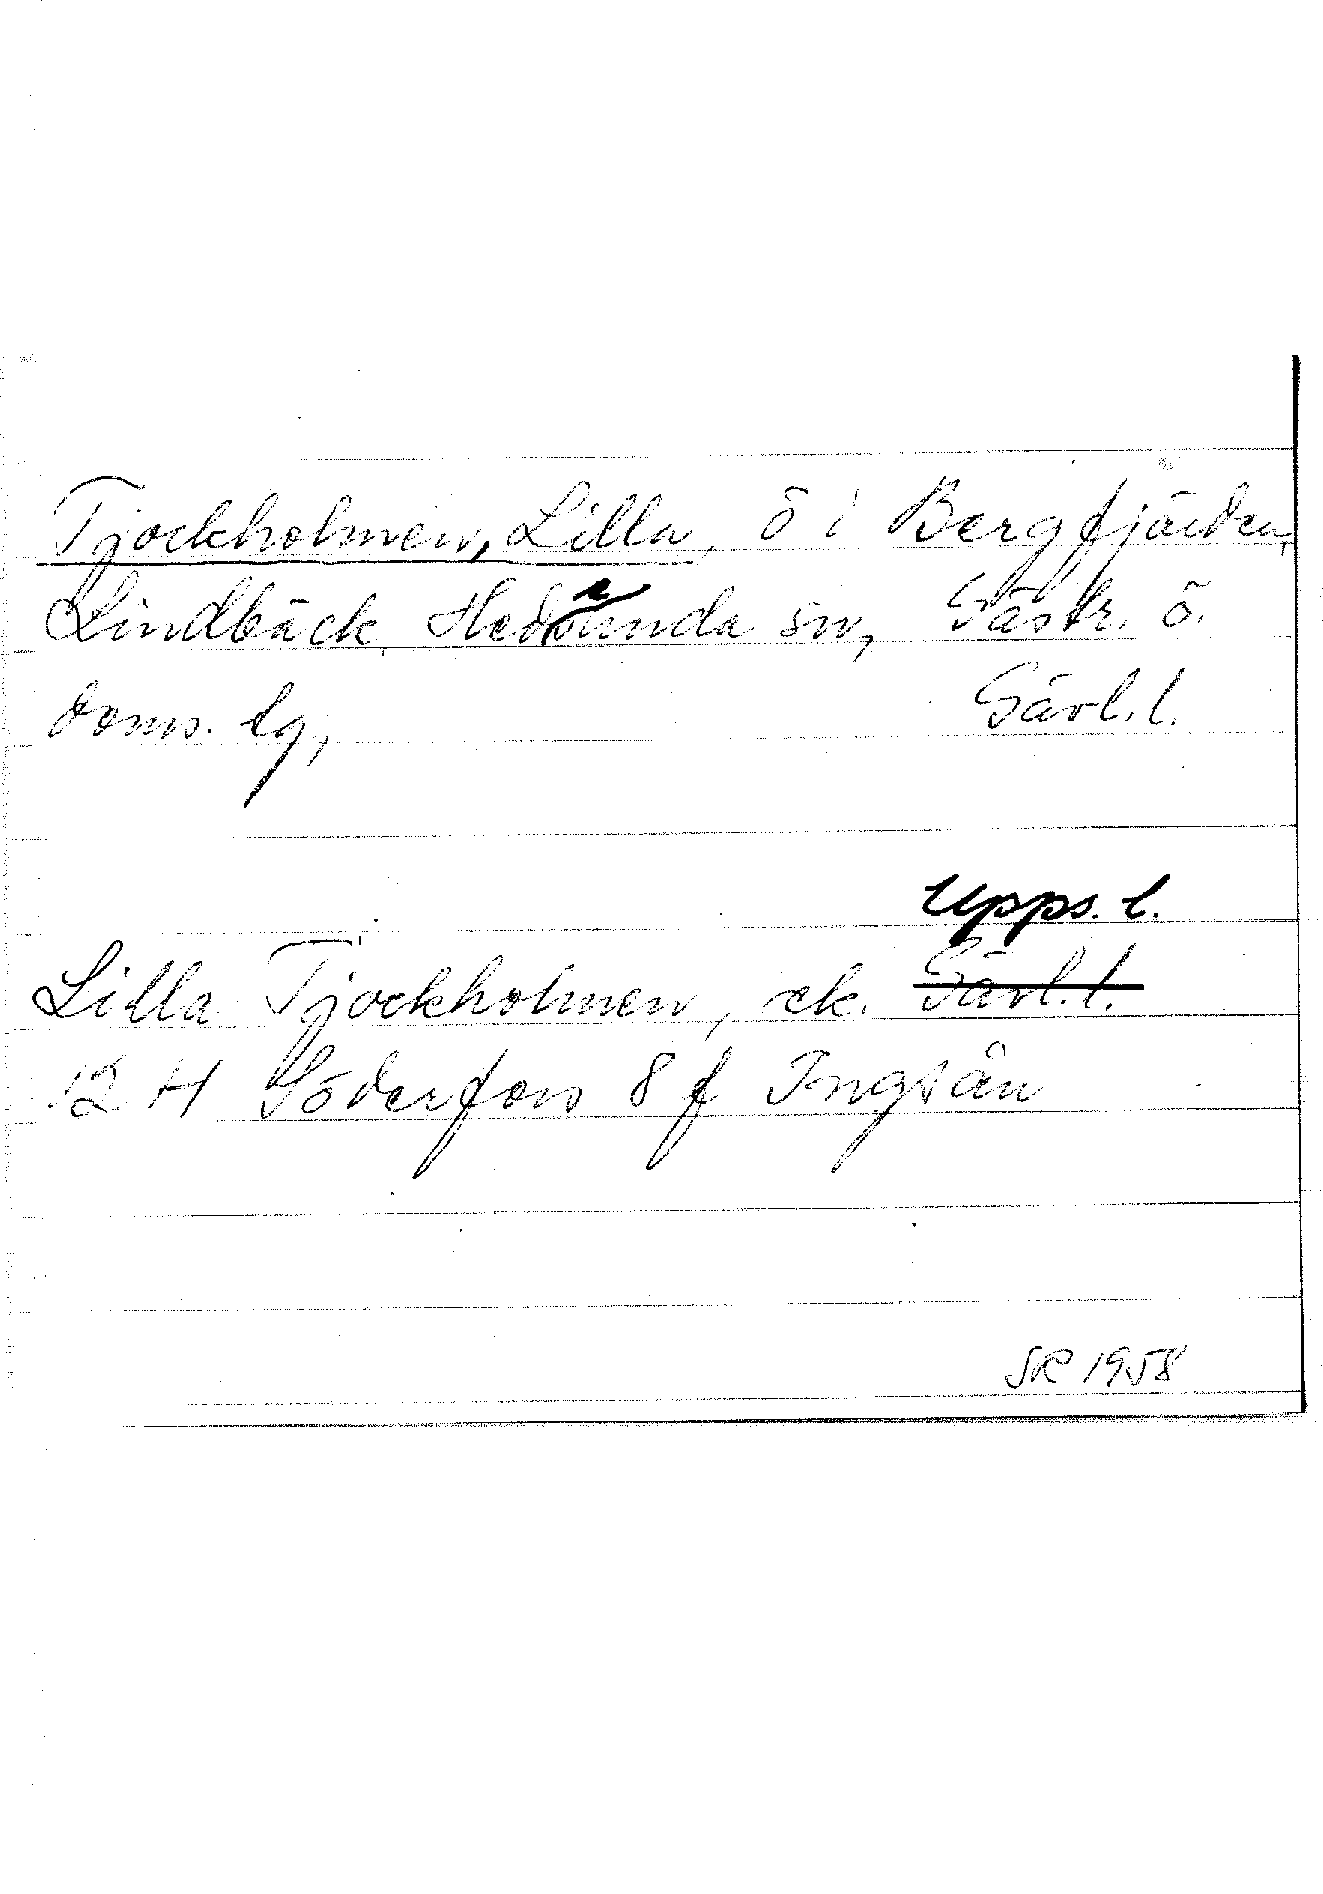 Tjockholmen, Lilla, ö i Bergfjärden,
Lindbäck, Hedesunda sn, Gästr. ö.
doms. lg, Gävl. l.
Upps. l.
Lilla Tjockholmen, ek. Gävl. l.
12 H Söderfors 8 f Ingsån
SR 1958